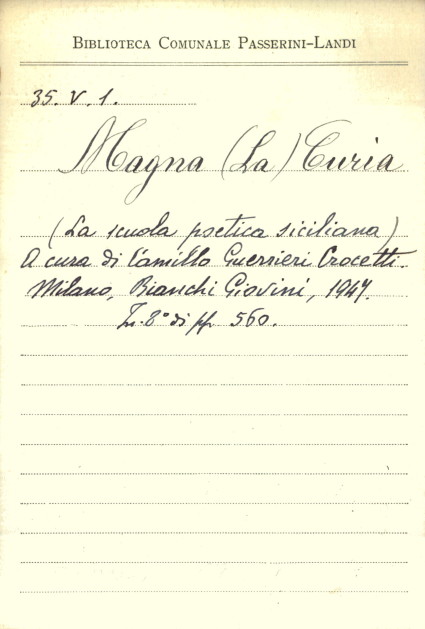 BIBLIOTECA COMUNALE PASSERINI-LANDI
35. V. 1.
Magna (La) Curia
(La scuola poetica siciliana)
A cura di Camillo Guerrieri Crocetti.
Milano, Bianchi Giovini, 1947.
In-8° di pp. 560.